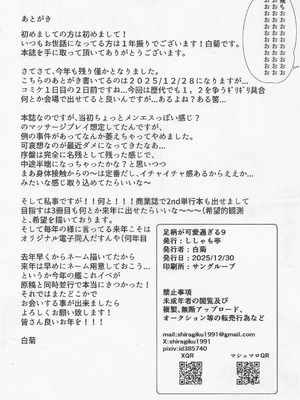 あとがき
初めましての方は初めまして！
いつもお世話になってる方は1年振りでございます！白菊です。
本誌を手に取って頂いてありがとうございます。
さてさて、今年も残り僅かとなりました。
こちらのあとがき書いてるのは2025/12/28になりますが…
コミケ1日目の2日前ですね…今回は歴代でも1，2を争うギリギリ具合
何とか会場で出せてると良いんですが…あるよね？ある筈…
本誌なのですが、当初ちょっとメンエスっぽい感じ？
のマッサージプレイ想定してたんですが、
例の事件があってなんか萎えちゃってやめました。
可哀想なのが最近ダメになってきたなあ…
序盤は完全に名残として残った感じで、
中途半端になっちゃったかな？と思いつつ
まあ身体接触からの～は定番だし、イチャイチャ感あるからええか…
みたいな感じ取り込めてたらいいな～
そして私事ですが！！何と！！！商業誌で2nd単行本も出せまして
目指すは3冊目も何とか来年に出せたらいいな～～～(希望的観測
と、希望を描いております。
そして毎年の様に言ってる来年こそは
オリジナル電子同人だすんや(何年目
去年早くからネーム描いてたから
来年は早めにネーム用意しておこ…
というか今年の艦これイベが
原稿と同時並行で本当にきつかった！
それではまたどこかで
お会いする事が出来ましたら
よろしくお願い致します！
皆さん良いお年を！！！
白菊
足柄が可愛過ぎる9
発行：ししゃも亭
発行者：白菊
発行日：2025/12/30
印刷所：サングループ
禁止事項
未成年者の閲覧及び
複製、無断アップロード、
オークション等の転売行為など
mail:shiragiku1991@gmail.com
X:shiragiku1991
pixiv:id385740
XQR
マシュマロQR